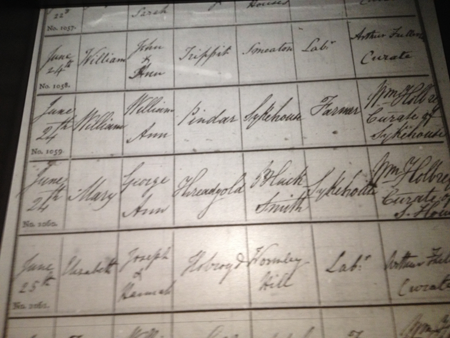 22d
No. 1057.
Sarah
June 24th William John & Ann Trippit Smeaton Labr Arthur Fullen Curate
No. 1058.
June 24th William William Ann Pindar Sykehouse Farmer Wm Holbrey Curate of Sykehouse
No. 1059.
June 24th Mary George Ann Threadgold Black Smith Sykehouse Wm Holbrey Curate of
No. 1060.
June 25th Elizabeth Joseph & Hannah Holroyd Wormley Hill Labr Arthur Curate
No. 1061.
Wm